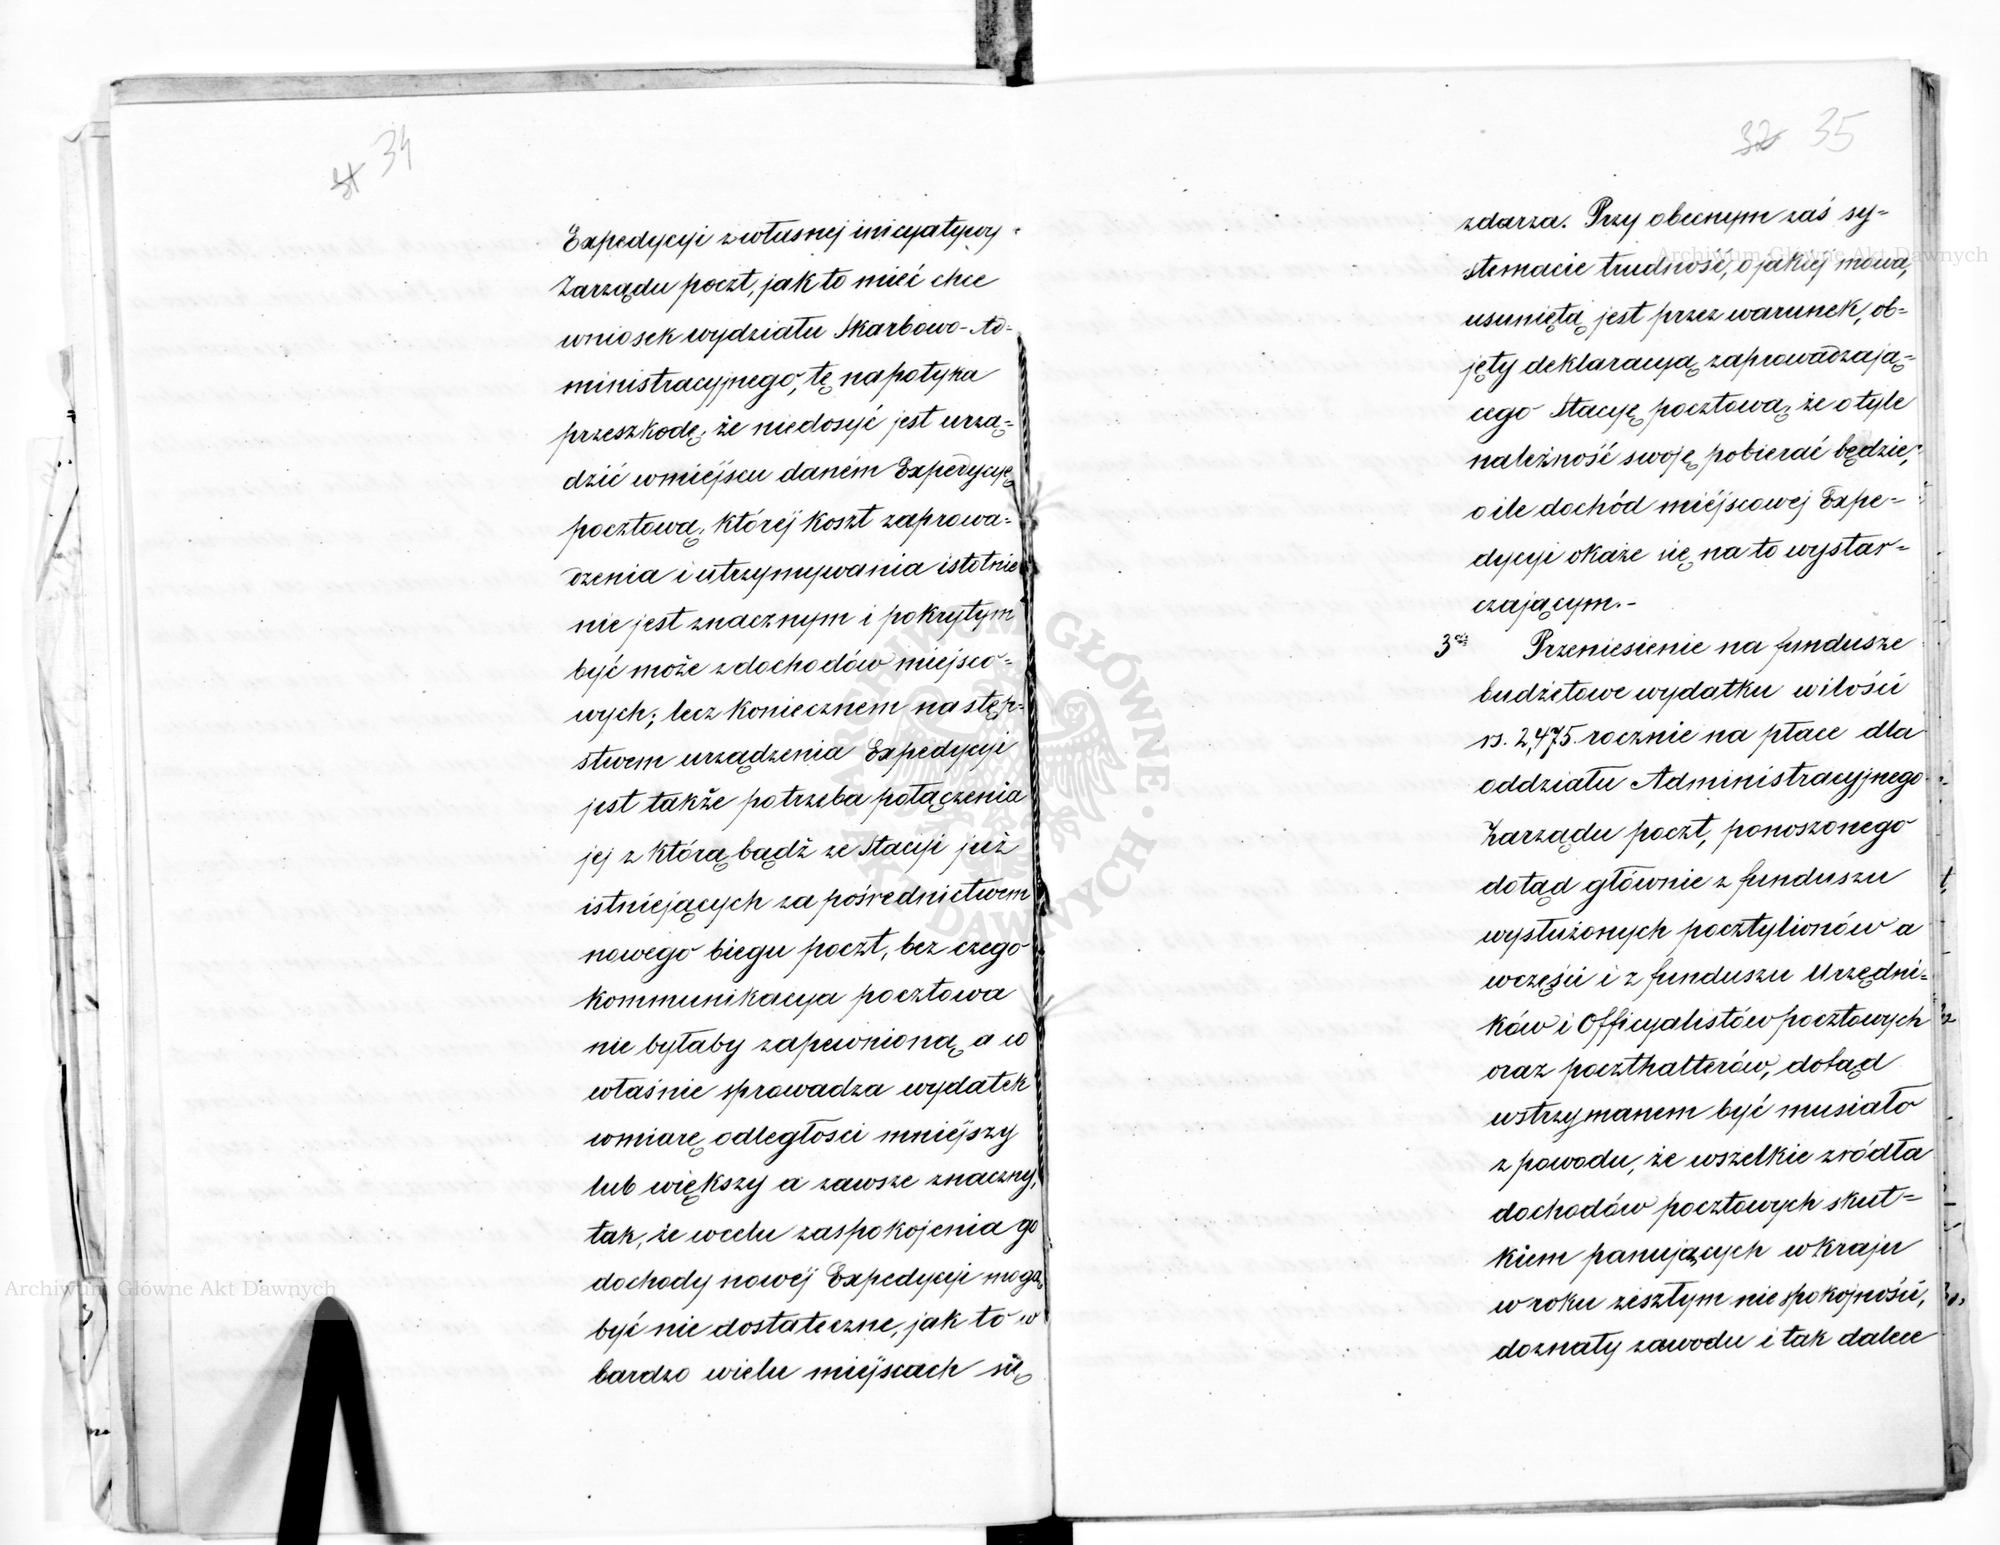 34
Expedycyi z własnej inicyatywy
Zarządu poczt, jak to mieć chce
wniosek wydziału Skarbowo-Ad=
ministracyjnego, tę napotyka
przeszkodę, że niedosyć jest urzą=
dzić w miejscu daném Expedycyę
pocztową, któréj koszt zaprowa=
dzenia i utrzymywania istotnie
nie jest znacznym i pokrytym
być może z dochodów miejsco=
wych; lecz koniecznem następ=
stwem urządzenia Expedycyi
jest także potrzeba połączenia
jej z którą bądź ze Stacyi już
istniejących za pośrednictwem
nowego biegu poczt, bez czego
kommunikacya pocztowa
nie byłaby zapewnioną, a co
właśnie sprowadza wydatek
w miarę odległości mniejszy
lub większy a zawsze znaczny,
tak, że w celu zaspokojenia go
dochody nowéj Expedycyi mogą
być nie dostateczne, jak to w
bardzo wielu miejscach się
32 35
zdarza. Przy obecnym zaś sy=
stemacie trudność, o jakiej mowa,
usuniętą jest przez warunek, ob=
jęty deklaracyą zaprowadzają=
cego Stacyę pocztową, że o tyle
należność swoję pobierać będzie,
o ile dochód miéjscowej Expe=
dycyi okaże się na to wystar=
czającym.-
3cie Przeniesienie na fundusze
budżetowe wydatku w ilości
rs. 2,475. rocznie na płace dla
oddziału Administracyjnego
Zarządu poczt, ponoszonego
dotąd głównie z funduszu
wysłużonych pocztylionów a
w części i z funduszu Urzędni=
ków i Officyalistów pocztowych
oraz poczthalterów, dotąd
wstrzymanem być musiało
z powodu, że wszelkie zródła
dochodów pocztowych skut=
kiem panujących w kraju
w roku zeszłym niespokojności,
doznały zawodu i tak dalece
Archiwum Główne Akt Dawnych
Archiwum Główne Akt Dawnych
ARCHIWUM GŁÓWNE AKT DAWNYCH